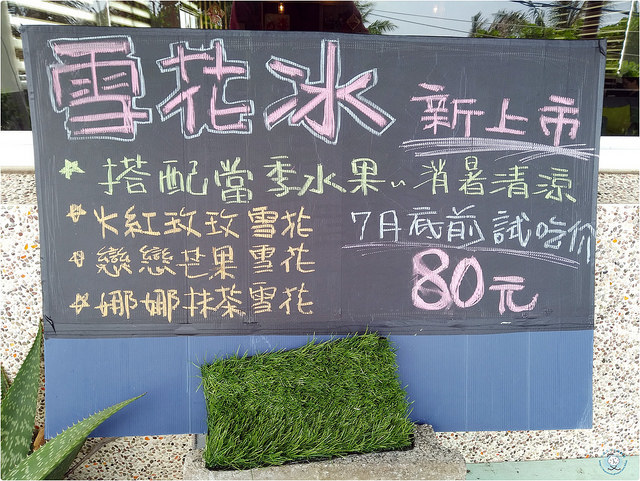 雪花冰 新上市
搭配當季水果、消暑清涼
火紅玫玫雪花
戀戀芒果雪花
娜娜抹茶雪花
7月底前試吃价
80元